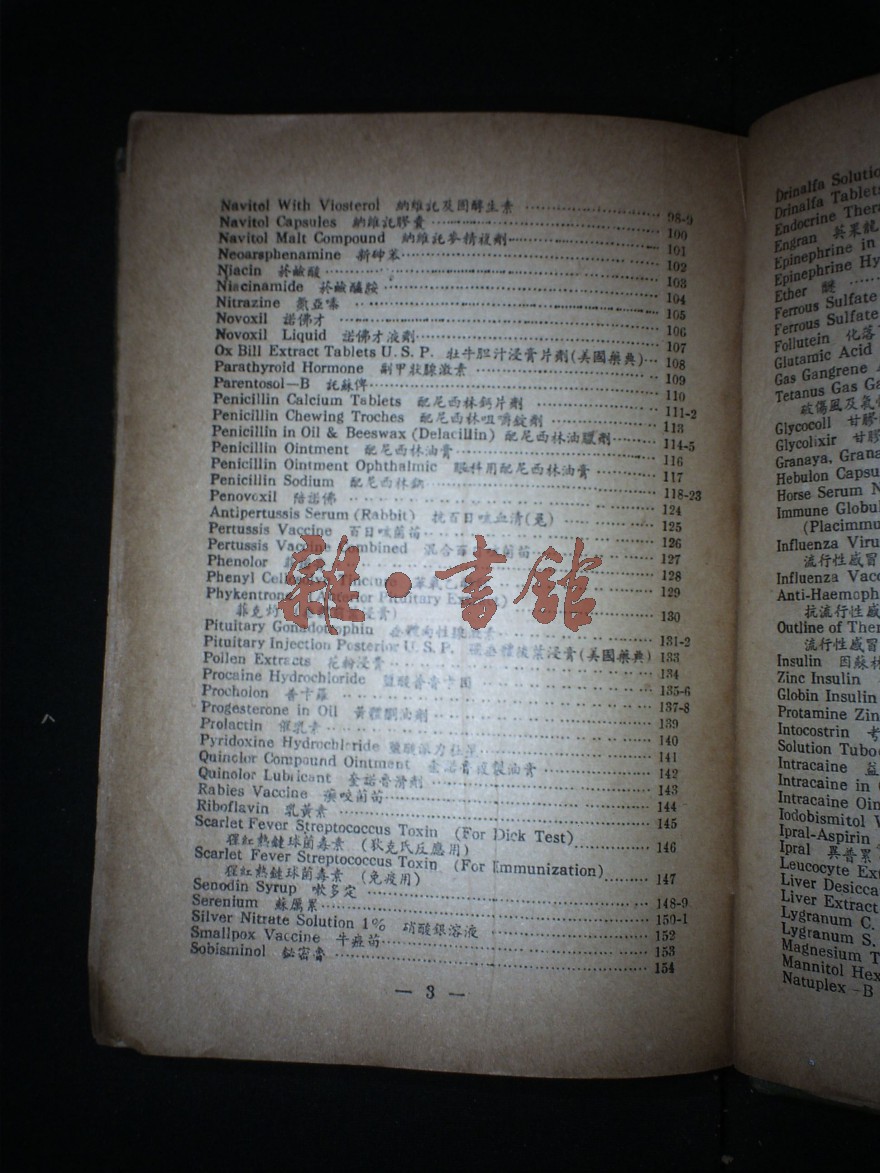 Navitol With Viosterol 納維託及因解生素 98-9
Navitol Capsules 納維託膠囊 100
Navitol Malt Compound 納維託麥精複劑 101
Neoarsphenamine 新砷苯 102
Niacin 菸鹼酸 103
Niacinamide 菸鹼醯胺 104
Nitrazine 105
Novoxil 諾佛才 106
Novoxil Liquid 諾佛才液劑 107
Ox Bill Extract Tablets U. S. P. 牡牛胆汁浸膏片劑(美國藥典) 108
Parathyroid Hormone 副甲狀腺激素 109
Parentosol—B 託蘇俾 110
Penicillin Calcium Tablets 配尼西林鈣片劑 111-2
Penicillin Chewing Troches 配尼西林咀嚼錠劑 113
Penicillin in Oil & Beeswax (Delacillin) 配尼西林油臘劑 114-5
Penicillin Ointment 配尼西林油膏 116
Penicillin Ointment Ophthalmic 眼科用配尼西林油膏 117
Penicillin Sodium 配尼西林鈉 118-23
Penovoxil 陪諾佛 124
Antipertussis Serum (Rabbit) 抗百日咳血清(兎) 125
Pertussis Vaccine 百日咳菌苗 126
Pertussis Vaccine Combined 混合百日咳菌苗 127
Phenolor 128
Phenyl 129
Phykentrone (Anterior Pituitary
菲克 浸膏) 130
雜·書館
Pituitary Gonadotrophin 131-2
Pituitary Injection Posterior U. S. P. 後葉浸膏(美國藥典) 133
Pollen Extracts 花粉浸膏 134
Procaine Hydrochloride 鹽酸普魯卡因 135-6
Procholon 普卡羅 137-8
Progesterone in Oil 黃體酮油劑 139
Prolactin 催乳素 140
Pyridoxine Hydrochloride 鹽酸 141
Quinolor Compound Ointment 奎諾魯複製油膏 142
Quinolor Lubricant 奎諾魯滑劑 143
Rabies Vaccine 瘈咬菌苗 144
Riboflavin 乳黃素 145
Scarlet Fever Streptococcus Toxin (For Dick Test)
猩紅熱鏈球菌毒素 (狄克氏反應用) 146
Scarlet Fever Streptococcus Toxin (For Emmunization)
猩紅熱鏈球菌毒素 (免疫用) 147
Senodin Syrup 嗽多定 148-9
Serenium 蘇厲累 150-1
Silver Nitrate Solution 1% 硝酸銀溶液 152
Smallpox Vaccine 牛痘苗 153
Sobisminol 鉍密魯 154
— 3 —
Drinalfa Solutio
Drinalfa Tablets
Endocrine Thera
Engran 英果龍
Epinephrine in
Epinephrine Hy
Ether 醚
Ferrous Sulfate
Ferrous Sulfate
Follutein 化落
Glutamic Acid
Gas Gangrene
Tetanus Gas Ga
破傷風及氣
Glycocoll 甘膠
Glycolixir 甘膠
Granaya, Grana
Hebulon Capsu
Horse Serum N
Immune Globul
(Placimmu
Influenza Viru
流行性感冒
Influenza Vacc
Anti-Haemoph
抗流行性感
Outline of Ther
流行性感冒
Insulin 因蘇林
Zinc Insulin
Globin Insulin
Protamine Zin
Intocostrin
Solution Tubo
Intracaine 益
Intracaine in
Intracaine Oin
Iodobismitol V
Ipral-Aspirin
Ipral 異普累
Leucocyte Ext
Liver Desicca
Liver Extract
Lygranum C.
Lygranum S.
Magnesium T
Mannitol Hex
Natuplex—B